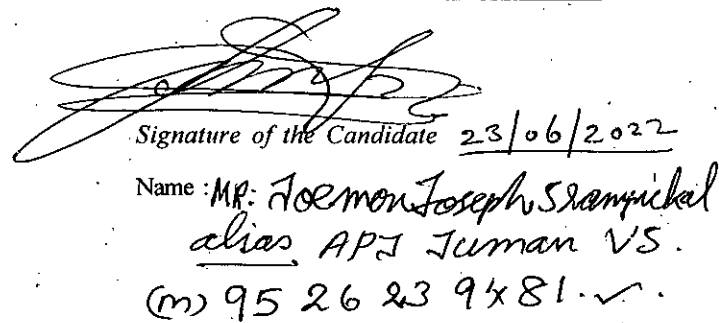 Signature of the Candidate 23/06/2022
Name : MR: Joemon Joseph Srampickal
alias APJ Juman VS.
(m) 95 26 23 9481.